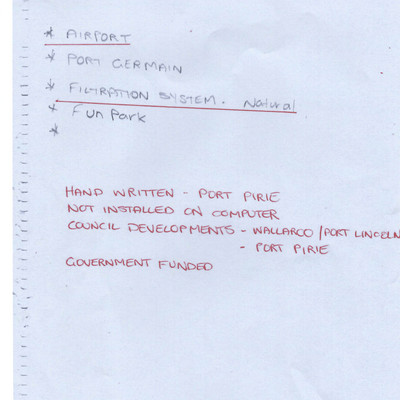 * AIRPORT
* PORT GERMAIN
* FILTRATION SYSTEM. Natural
* Fun Park
*
HAND WRITTEN - PORT PIRIE
NOT INSTALLED ON COMPUTER
COUNCIL DEVELOPMENTS - WALLAROO / PORT LINCOLN
- PORT PIRIE
GOVERNMENT FUNDED